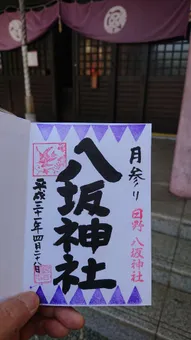 月参り
日野 八坂神社
八坂神社
平成三十一年四月二十八日